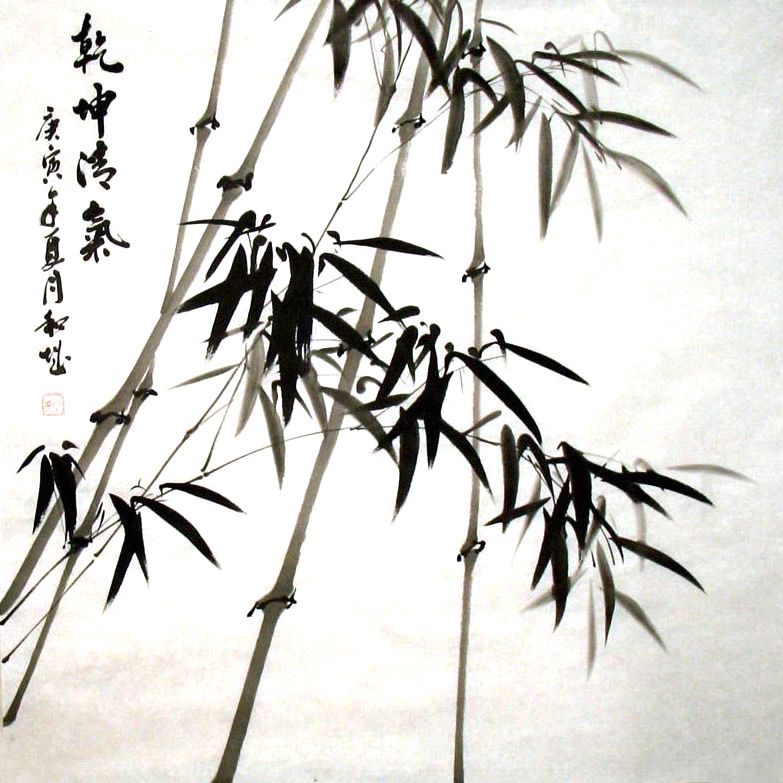 乾坤清氣
庚寅年夏月和斌